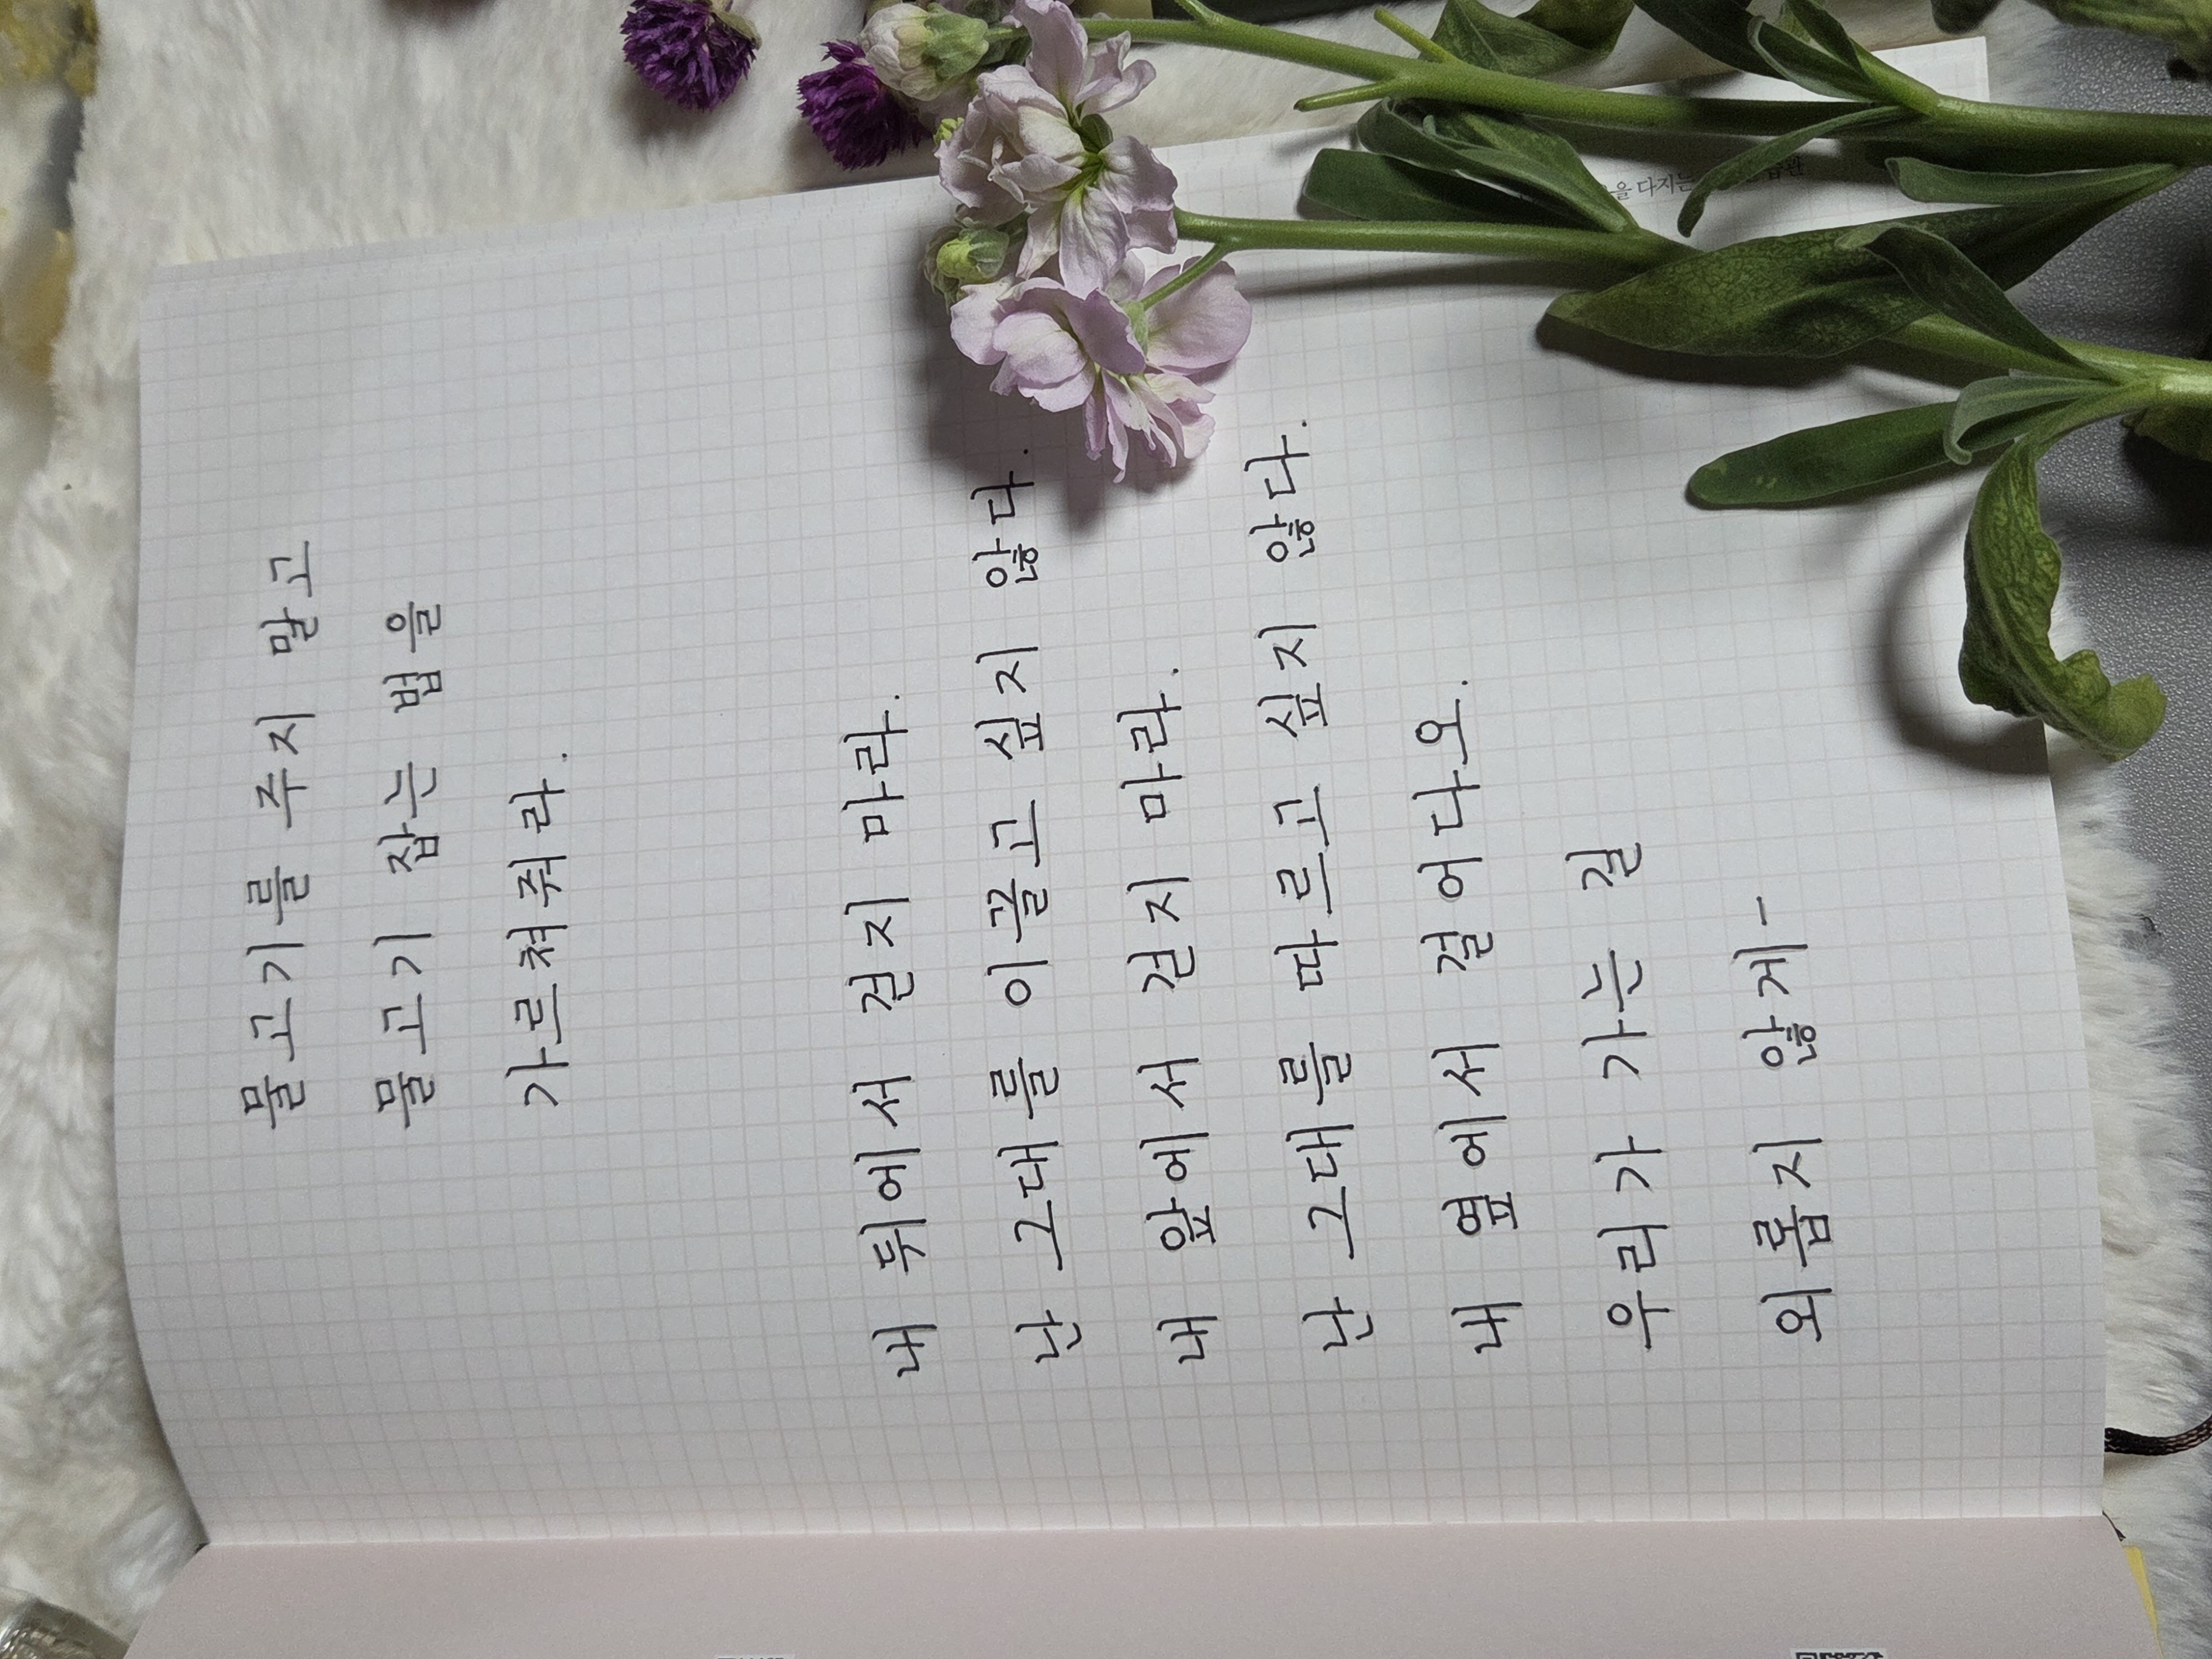 물고기를 주지 말고
물고기 잡는 법을
가르쳐줘라.
내 뒤에서 걷지 마라.
난 그대를 이끌고 싶지 않다.
내 앞에서 걷지 마라.
난 그대를 따르고 싶지 않다.
내 옆에서 걸어다오.
우리가 가는 길
외롭지 않게-
다지는